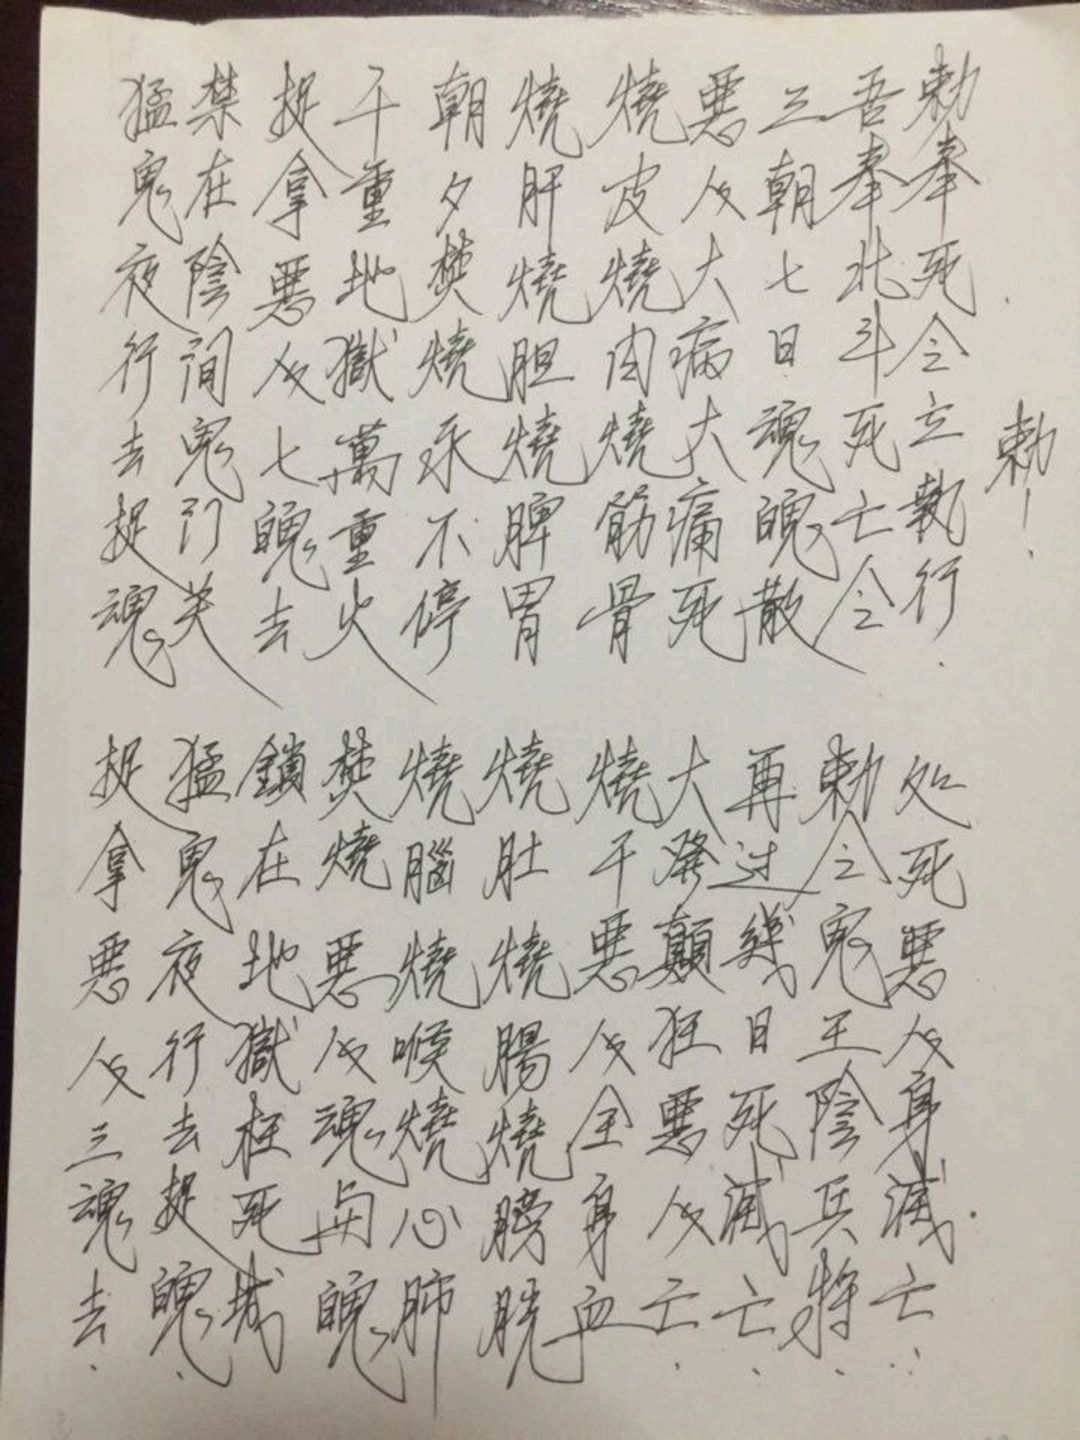 猛鬼夜行去捉魂
捉拿惡人三魂去
禁在陰间鬼门关
猛鬼夜行去捉魄
捉拿惡人七魄去
鎖在地獄枉死城
千重地獄萬重火
焚燒惡人魂与魄
朝夕焚燒永不停
燒腦燒喉燒心肺
燒肝燒胆燒脾胃
燒肚燒腸燒膀胱
燒皮燒肉燒筋骨
燒干惡人全身血
惡人大病大痛死
大發顛狂惡人亡
三朝七日魂魄散
再过幾日死滅亡
吾奉北斗死亡令
勅令鬼王陰兵將
勅奉死令立執行
处死惡人身滅亡
勅！